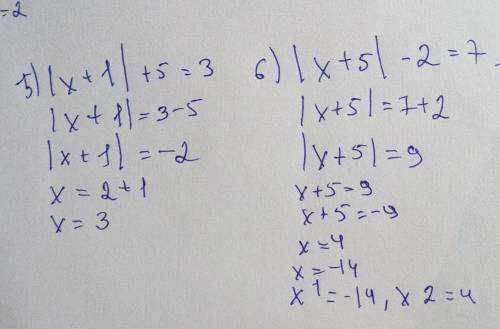 =2
5) |x+1| +5=3
|x+1|=3-5
|x+1|=-2
x=2+1
x=3
6) |x+5| -2=7
|x+5|=7+2
|x+5|=9
x+5=9
x+5=-9
x=4
x=-14
x 1=-14, x 2=4